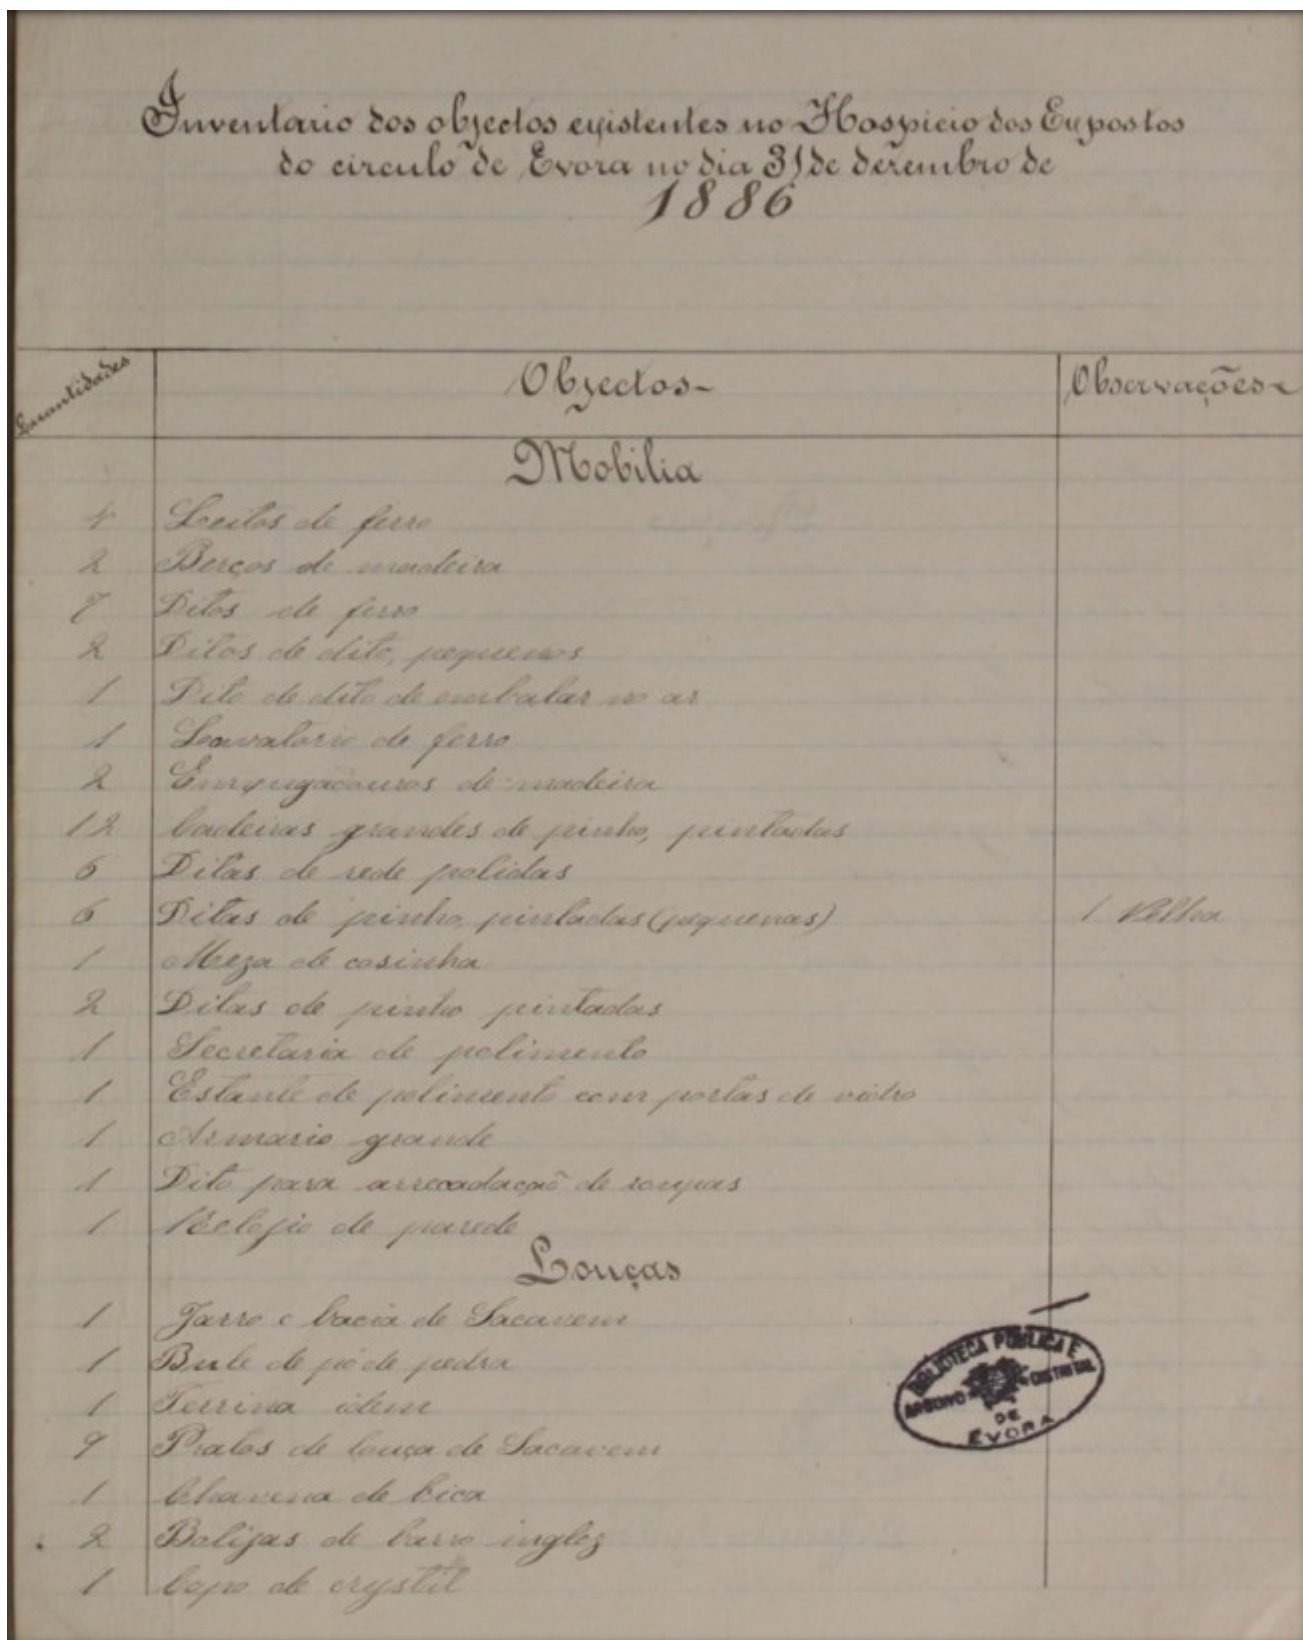 Inventario dos objectos existentes no Hospicio dos Expostos
do circulo de Evora no dia 31 de dezembro de
1886
Quantidades Objectos Observações
Mobilia
4 Leitos de ferro
2 Berços de madeira
7 Ditos de ferro
2 Ditos de dito, pequenos
1 Dito de dito de embalar no ar
1 Lavatorio de ferro
2 Enxugadouros de madeira
12 Cadeiras grandes de pinho, pintadas
6 Ditas de rede polidas
6 Ditas de pinho, pintadas (pequenas) 1 Velha
1 Meza de cosinha
2 Ditas de pinho pintadas
1 Secretaria de polimento
1 Estante de polimento com portas de vidro
1 Armario grande
1 Dito para arrecadação de roupas
1 Relojio de parede
Louças
1 Jarro e bacia de Sacavem
1 Bule de pó de pedra
1 Terrina idem
9 Pratos de louça de Sacavem
1 Chavena de bica
2 Botijas de barro inglez
1 Copo de crystal
BIBLIOTECA PÚBLICA E
ARQUIVO DISTRITAL
DE
EVORA